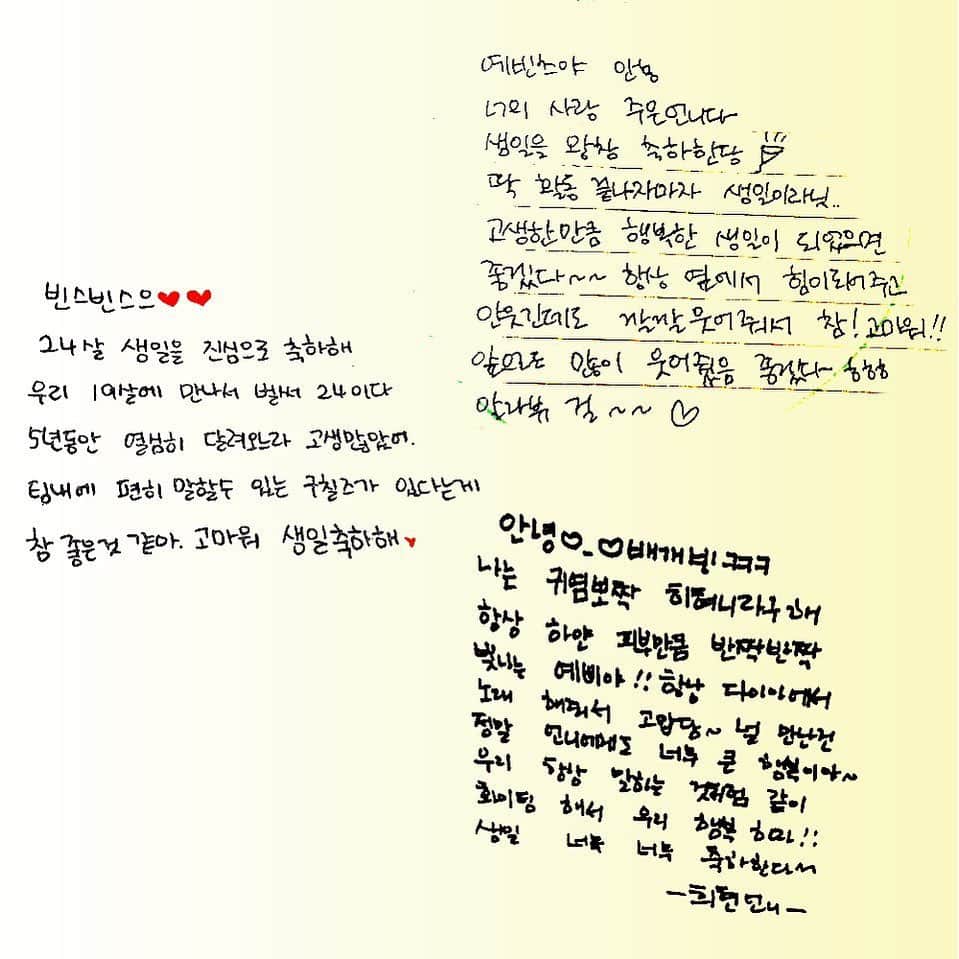 예빈츠야 안농
너의 사랑 주은언니다
생일을 왕창 축하한당
딱 활동 끝나자마자 생일이라닛..
고생한만큼 행복한 생일이 되었으면
좋겠다~~ 항상 옆에서 힘이되어주고
안웃긴데도 깔깔 웃어줘서 참! 고마워!!
앞으로도 많이 웃어줬음 좋겠다 ㅎㅎㅎ
알라뷰 걸~~♡
빈스빈스으❤❤
24살 생일을 진심으로 축하해
우리 19살에 만나서 벌써 24이다
5년동안 열심히 달려오느라 고생많았어.
팀내에 편히 말할수 있는 구칠즈가 있다는게
참 좋은것 같아. 고마워 생일축하해❤
안녕♡_♡배개빈!ㅋㅋㅋ
나는 귀염뽀짝 히혀니라구해
항상 하얀 피부만큼 반짝반짝
빛나는 예비야!! 항상 다이아에서
노래 해줘서 고맙당~ 널 만난건
정말 언니에게도 너무 큰 행복이야~
우리 항상 말하는 것처럼 같이
화이팅 해서 우리 행복 하마!!
생일 너무 너무 축하한다서
-희현언니-